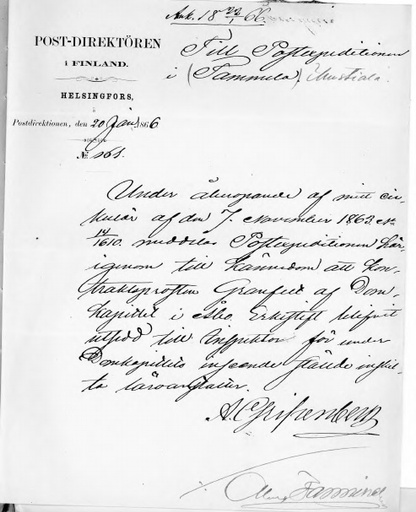 Ank. 18 22/1 66.
POST-DIREKTÖREN
I FINLAND.
HELSINGFORS,
Postdirektionen, den 20 Jan. 1866
№ 161.
Till Postexpeditionen
i (Tammela) Mustiala.
Under åberopande af mitt cir-
kulär af den 7. November 1863 №
14/1610. meddelas Postexpeditionen här-
igenom till kännedom att kon-
traktsprosten Granfelt af Dom-
kapitlet i Åbo Erkestift blifvit
utsedd till Inspektor för under
Domkapitlets inseende stående enskil-
ta läroanstalter.
A. Gripenberg